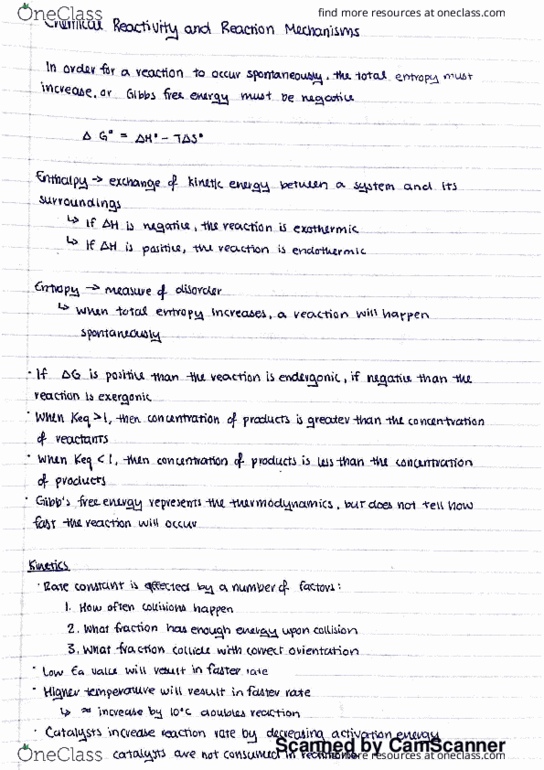 OneClass
find more resources at oneclass.com
Chemical Reactivity and Reaction Mechanisms
In order for a reaction to occur spontaneously, the total entropy must
increase, or Gibbs free energy must be negative
Δ G° = ΔH° - TΔS°
Enthalpy → exchange of kinetic energy between a system and its
surroundings
↳ If ΔH is negative, the reaction is exothermic
↳ If ΔH is positive, the reaction is endothermic
Entropy → measure of disorder
↳ When total entropy increases, a reaction will happen
spontaneously
· If ΔG is positive than the reaction is endergonic, if negative than the
reaction is exergonic
· When Keq >1, then concentration of products is greater than the concentration
of reactants
· When Keq <1, then concentration of products is less than the concentration
of products
· Gibb's free energy represents the thermodynamics, but does not tell how
fast the reaction will occur
Kinetics
· Rate constant is affected by a number of factors:
1. How often collisions happen
2. What fraction has enough energy upon collision
3. What fraction collide with correct orientation
· Low Ea value will result in faster rate
· Higher temperature will result in faster rate
↳ ≈ increase by 10°C doubles reaction
· Catalysts increase reaction rate by decreasing activation energy
Scanned by CamScanner
OneClass
catalysts are not consumed in
more resources at oneclass.com